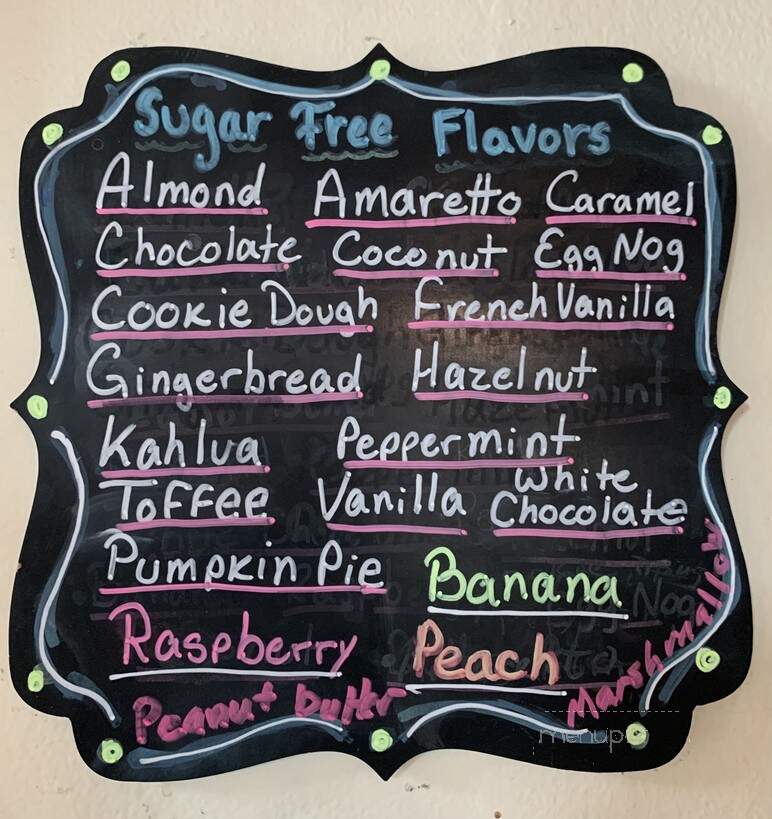 Sugar Free Flavors
Almond Amaretto Caramel
Chocolate Coconut Egg Nog
Cookie Dough French Vanilla
Gingerbread Hazelnut
Kahlua Peppermint
Toffee Vanilla White Chocolate
Pumpkin Pie Banana
Raspberry Peach Marshmallow
Peanut butter
menupix